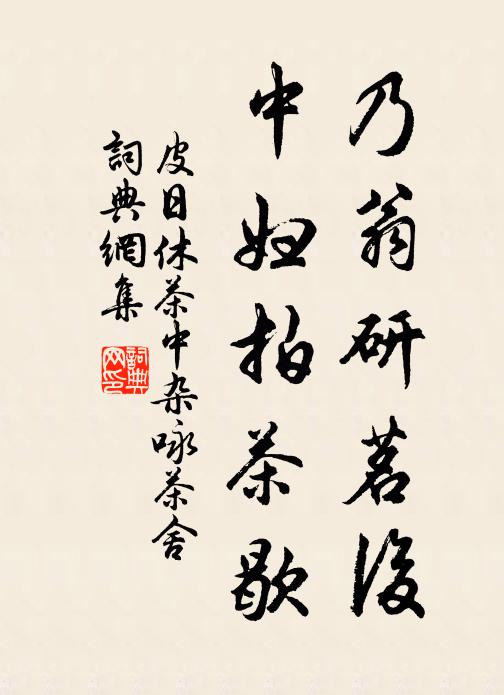 乃翁研茗後
中妇拍茶歇
皮日休茶中杂咏茶舍
詞典網集
詞典网印